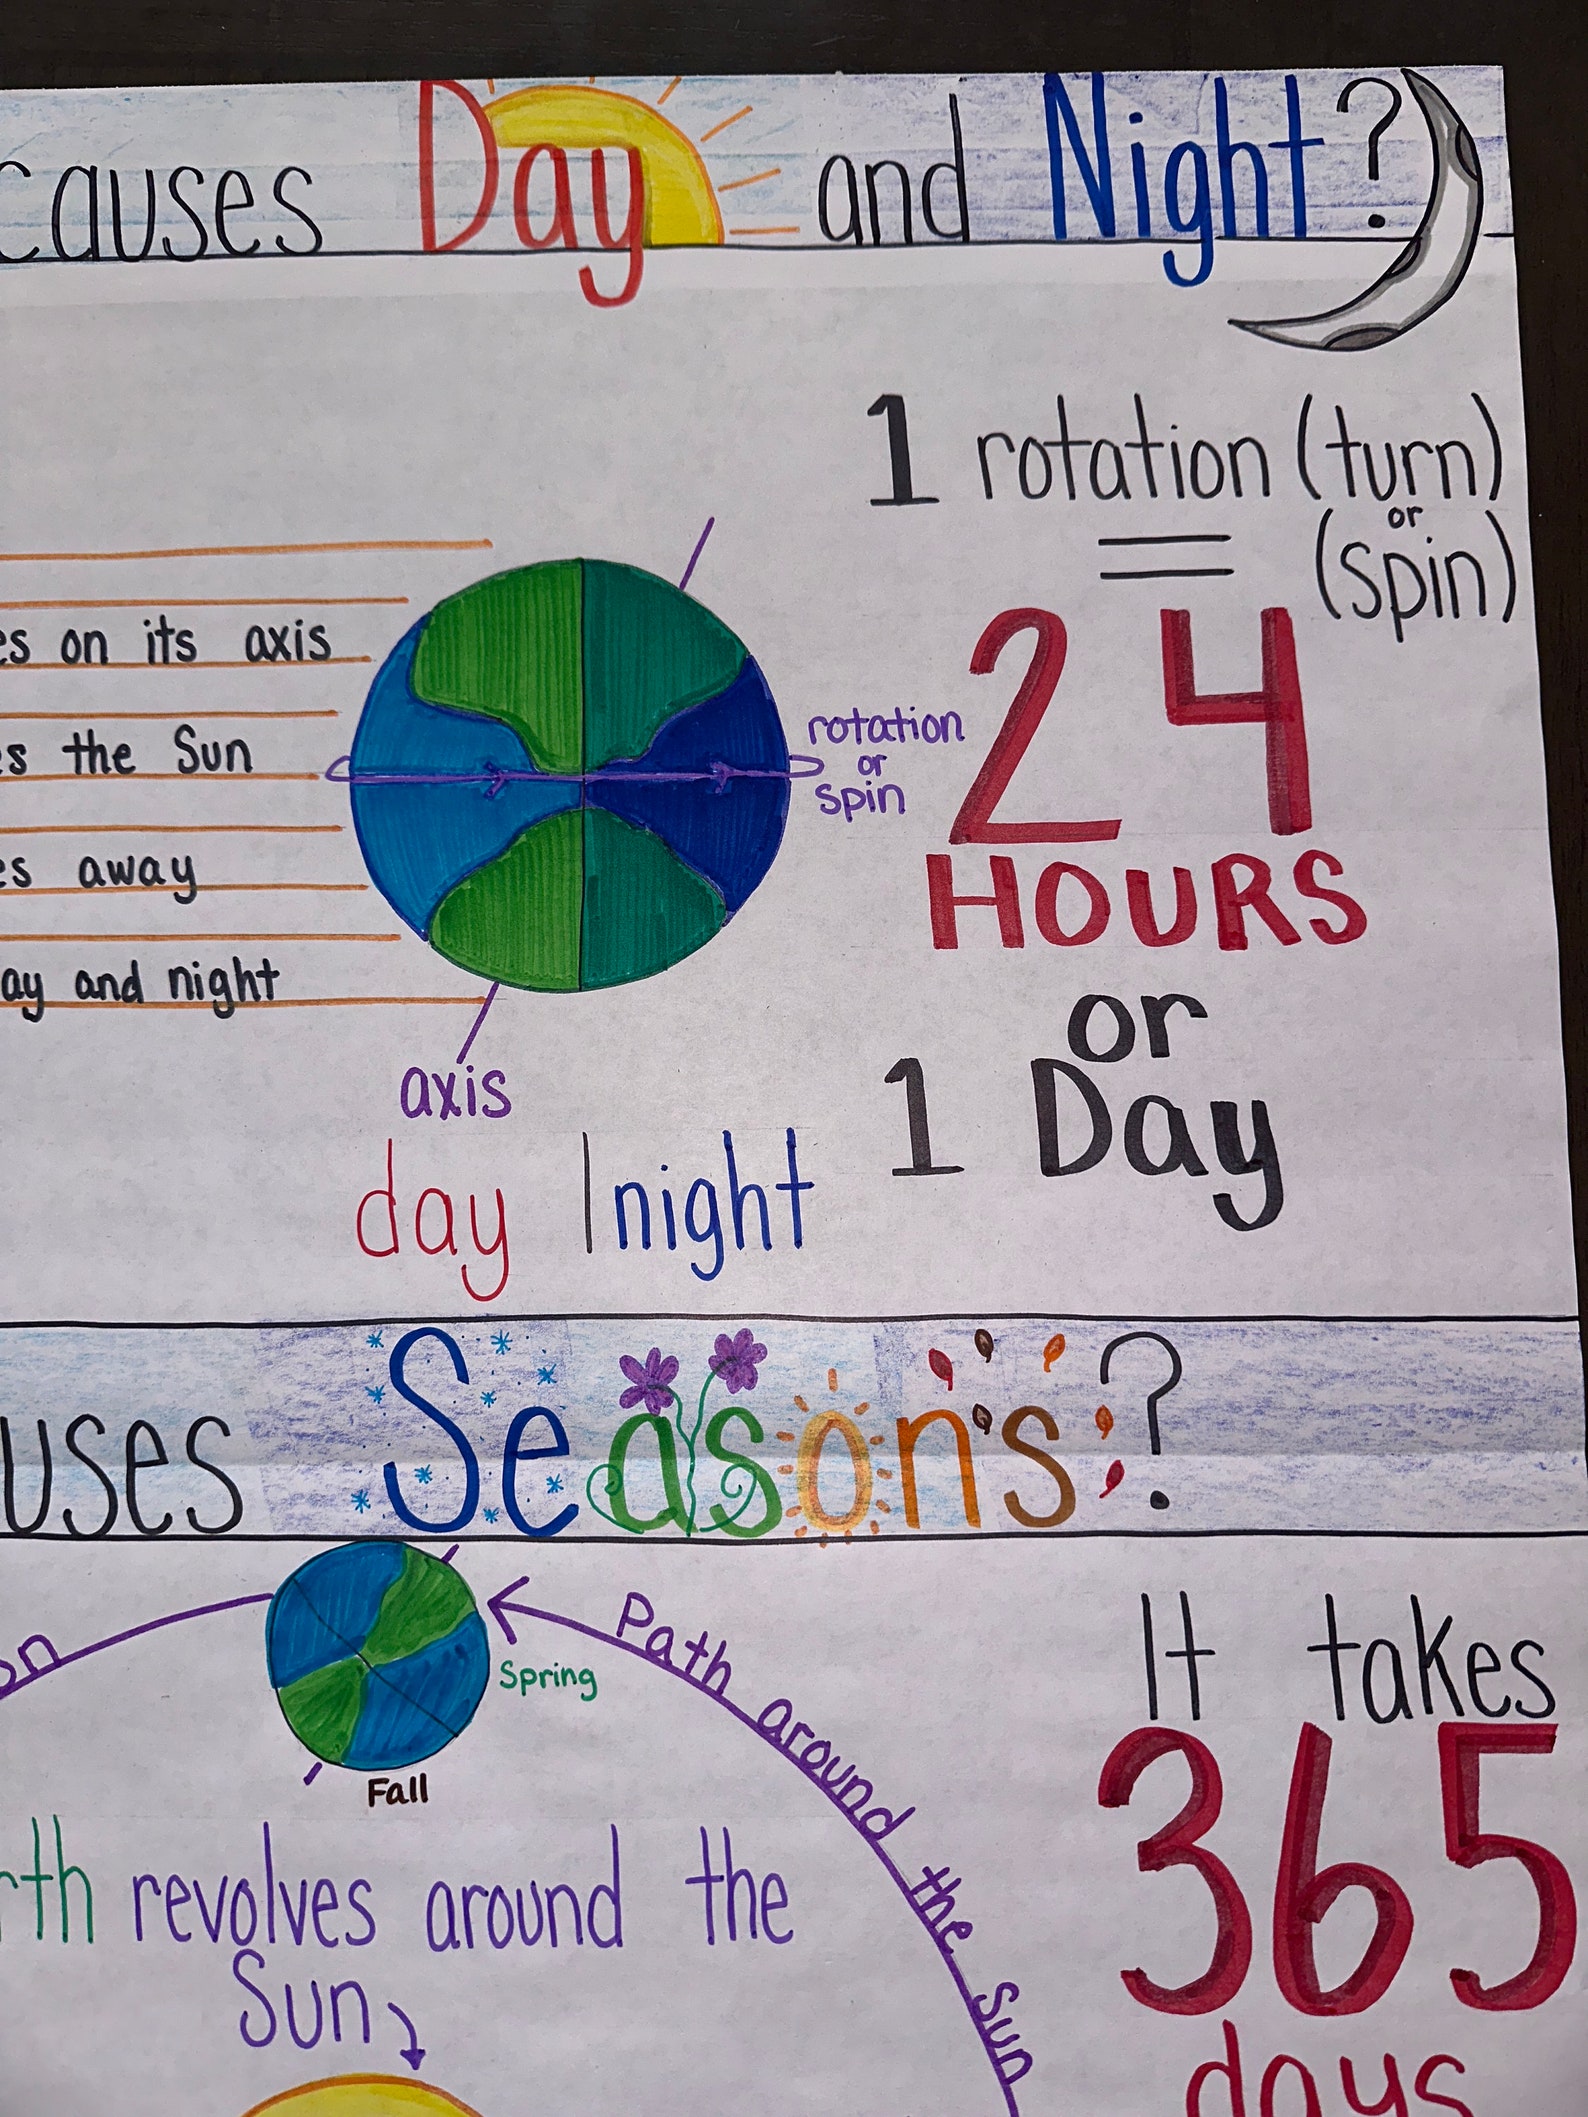 causes Day and Night?
1 rotation (turn)
or
= (spin)
24
HOURS
or
1 Day
es on its axis
es the Sun
es away
ay and night
rotation
or
spin
axis
day | night
uses Seasons?
on
Spring
Fall
Path around the Sun
rth revolves around the
Sun
It takes
365
days